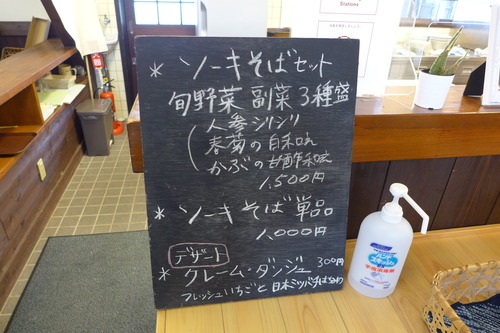 * ソーキそばセット
旬野菜 副菜3種盛
人参シリシリ
春菊の白和え
かぶの甘酢和え
1,500円
* ソーキそば単品
1,000円
デザート
* クレーム・ダンジュ 300円
フレッシュいちごと 日本ミツバチはちみつ
ハンド
スキッシュ
手指消毒
Stations